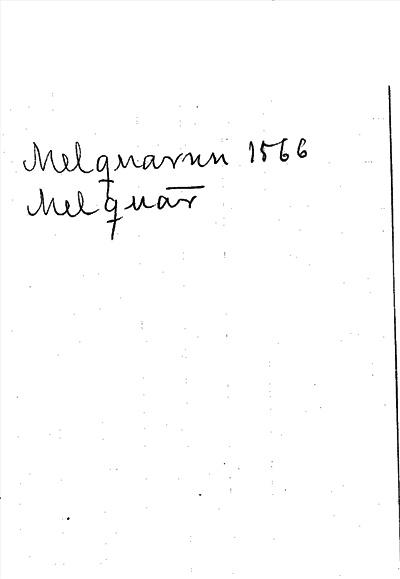 Melquarun 1566
Melquar̄